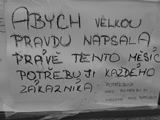 ABYCH VELKOU
PRAVDU NAPSALA
PRÁVĚ TENTO MĚSÍC
POTŘEBUJI KAŽDÉHO
ZÁKAZNÍKA.